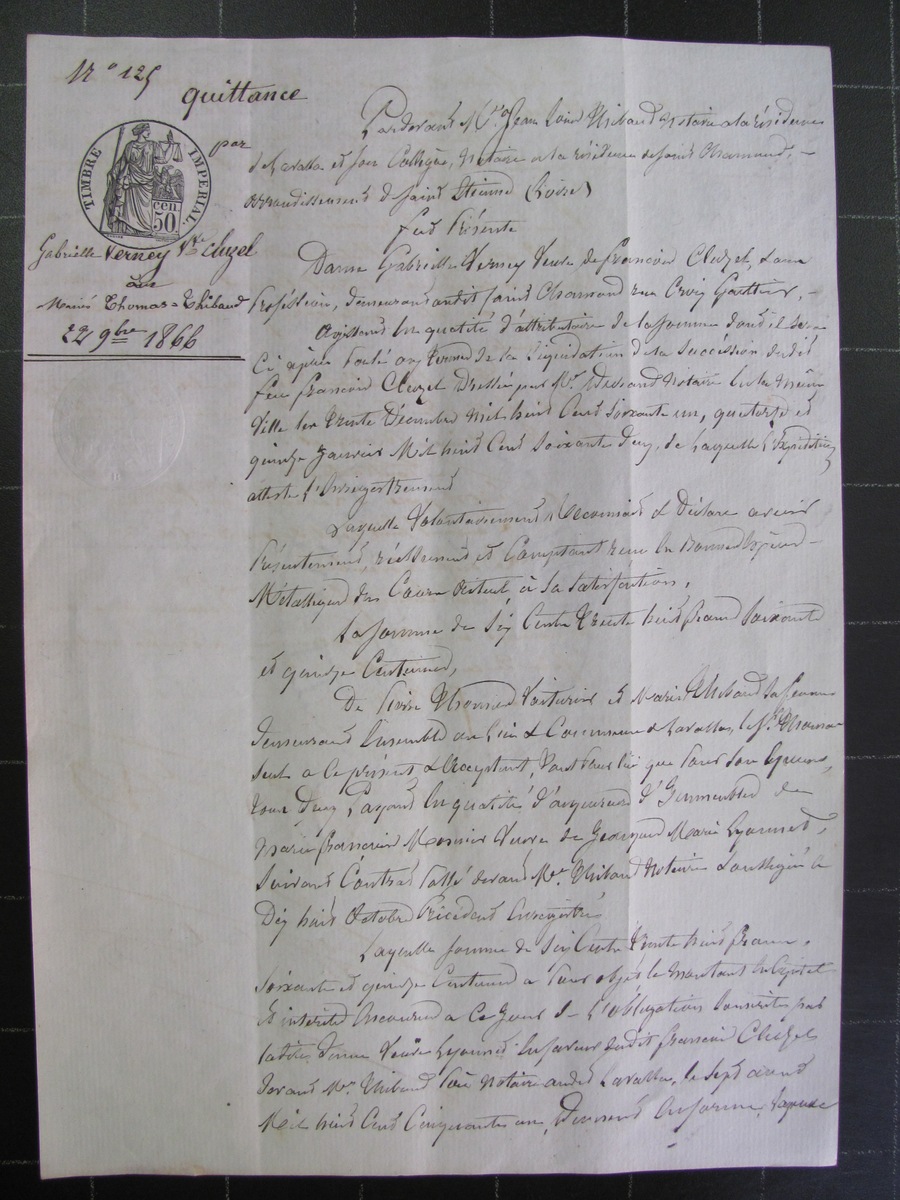 N° 125
quittance
par
TIMBRE IMPERIAL
50 cen
Gabrielle Verney Vve Cluzel
aux
Mariés Thomas-Thibaud
22 9bre 1866
Pardevant Me Jean Louis Thibaud Notaire à la résidence
de Lavalla et son Collègue, Notaire à la résidence de Saint Chamond,
arrondissement de Saint Etienne (Loire)
Fut Présente
Dame Gabrielle Verney Veuve de François Cluzel, sans
Profession, demeurant audit Saint Chamond rue Croix Gauthier,
Agissant en qualité d'attributaire de la somme dont il sera
Ci après parlé aux termes de la liquidation de la Succession dudit
feu François Cluzel Dressée par Me Notaire en la même
Ville les trente Décembre mil huit Cent soixante un, quatorze et
quinze Janvier Mil huit Cent Soixante deux, de laquelle l'Expédition
atteste l'Enregistrement
Laquelle Volontairement Reconnait & Déclare avoir
Présentement, réellement et Comptant reçu en Bonnes Espèces
Métalliques du Cours Actuel à sa satisfaction,
La somme de Six Cents trente huit francs Soixante
et quinze Centimes,
De Pierre Thomas Voiturier et Marie Thibaud sa femme
demeurant Ensemble au lieu & Commune de Lavalla, le Sr. Thomas
seul à ce présent & Acceptant, tant pour lui que pour son épouse,
tous deux Payant en qualité d'acquéreurs d'Immeubles de
Marie Françoise Monier Veuve de Jean Marie Lyonnet,
Suivant Contrat Passé devant Me. Thibaud Notaire Soussigné le
Dix huit Octobre Précédent Enregistré
Laquelle somme de Six Cents trente huit francs
soixante et quinze Centimes a pour objet le montant en Capital
et intérêts Encourus à ce Jour de l'obligation souscrite par
ladite Dame Veuve Lyonnet en faveur dudit François Cluzel
devant Me Thibaud Notaire audit Lavalla, le Sept août
Mil huit Cent Cinquante un, en forme,